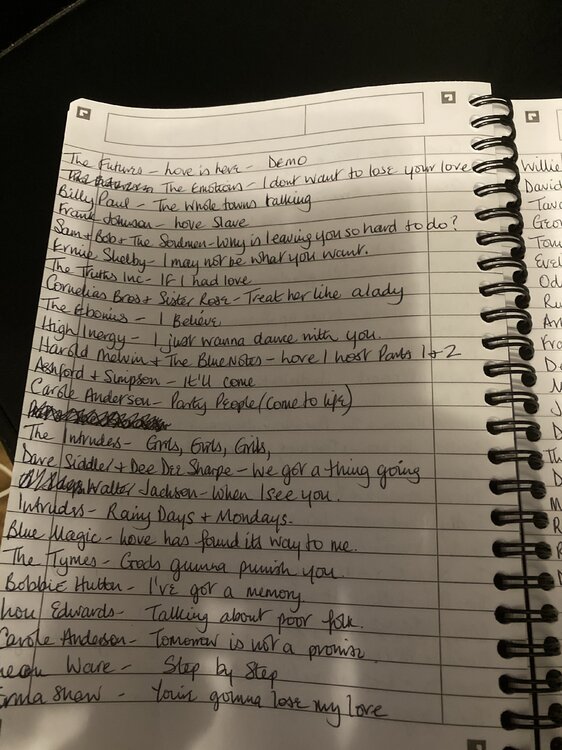 The Futures - Love is here - DEMO
The Emotions - I dont want to lose your love
Billy Paul - The Whole towns talking
Frank Johnson - Love Slave
Sam + Bob + The Soulmen - Why is leaving you so hard to do?
Ernie Shelby - I may not be what you want.
The Truths Inc - If I had love
Cornelius Bros + Sister Rose - Treat her like a lady
The Ebonies - I Believe
High Inergy - I just wanna dance with you.
Harold Melvin + The BlueNotes - Love I Lost Parts 1 + 2
Ashford + Simpson - It'll come
Carole Anderson - Party People (Come to life)
The Intrudes - Girls, Girls, Girls,
Dave Siddle + Dee Dee Sharpe - We got a thing going
Walter Jackson - When I see you.
Intrudes - Rainy Days + Mondays.
Blue Magic - Love has found its way to me.
The Tymes - Gods gunna punish you.
Bobbie Hutton - I've got a memory
Lou Edwards - Talking about poor folk.
Carole Anderson - Tomorrow is not a promise
Ware - Step by Step
Shaw - Your gonna lose my love
Willie
David
Tava
Geor
Tom
Evel
Od
Ru
An
Fra
De
M
J
D
Th
D
M
R